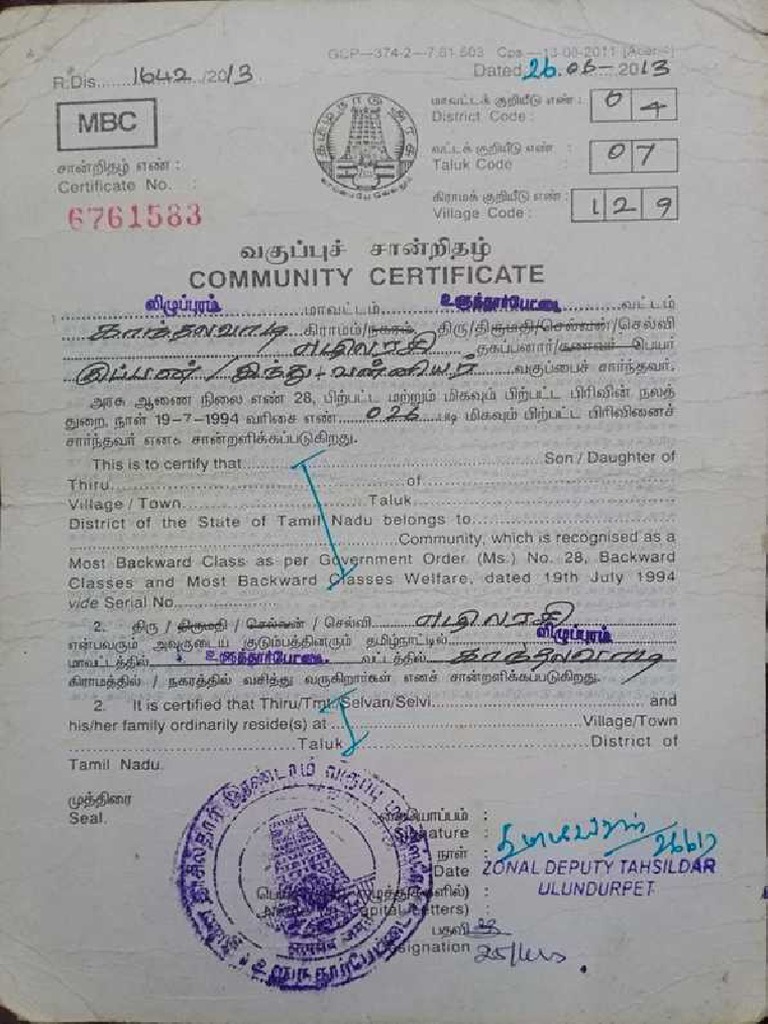 GCP—374-2—7,61,503 Cps.—13-08-2011
R.Dis.......1642../2013
Dated 26.06-2013
MBC
மாவட்டக் குறியீடு எண் :
District Code : 0 4
வட்டக் குறியீடு எண் :
Taluk Code : 07
சான்றிதழ் எண் :
Certificate No. :
6761583
கிராமக் குறியீடு எண் :
Village Code : 1 2 9
வகுப்புச் சான்றிதழ்
COMMUNITY CERTIFICATE
விழுப்புரம் மாவட்டம் உளுந்தூர்பேட்டை வட்டம்
காந்தலவாடி கிராமம்/நகரம், திரு/திருமதி/செல்வன்/செல்வி
எழிலரசி தகப்பனார்/கணவர் பெயர்
குப்பன் / இந்து - வன்னியர் வகுப்பைச் சார்ந்தவர்.
அரசு ஆணை நிலை எண் 28, பிற்பட்ட மற்றும் மிகவும் பிற்பட்ட பிரிவின் நலத்
துறை, நாள் 19-7-1994 வரிசை எண் 026 படி மிகவும் பிற்பட்ட பிரிவினைச்
சார்ந்தவர் எனச் சான்றளிக்கப்படுகிறது.
This is to certify that Son / Daughter of
Thiru of
Village / Town Taluk
District of the State of Tamil Nadu belongs to
Community, which is recognised as a
Most Backward Class as per Government Order (Ms.) No. 28, Backward
Classes and Most Backward Classes Welfare, dated 19th July 1994
vide Serial No.
2. திரு / திருமதி / செல்வன் / செல்வி எழிலரசி
என்பவரும் அவருடைய குடும்பத்தினரும் தமிழ்நாட்டில் விழுப்புரம்
மாவட்டத்தில் உளுந்தூர்பேட்டை வட்டத்தில் காந்தலவாடி
கிராமத்தில் / நகரத்தில் வசித்து வருகிறார்கள் எனச் சான்றளிக்கப்படுகிறது.
2. It is certified that Thiru/Tmt./Selvan/Selvi and
his/her family ordinarily reside(s) at Village/Town
Taluk District of
Tamil Nadu.
முத்திரை
Seal.
கையொப்பம் :
Signature :
நாள் :
Date
ZONAL DEPUTY TAHSILDAR
ULUNDURPET
பதவி